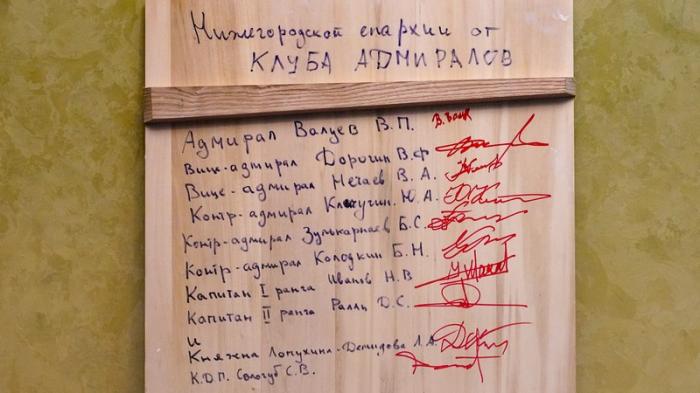 Нижегородской епархии от
КЛУБА АДМИРАЛОВ
Адмирал Валуев В.П.
Вице-адмирал Дорогин В.Ф
Вице-адмирал Нечаев В.А.
Контр-адмирал Кличугин Ю.А.
Контр-адмирал Зулькарнаев Б.С.
Контр-адмирал Колодкин Б.Н.
Капитан I ранга Иванов Н.В
Капитан II ранга Ралли D.С.
и
Княжна Лопухина-Демидова Л.А.
К.D.П. Сологуб С.В.